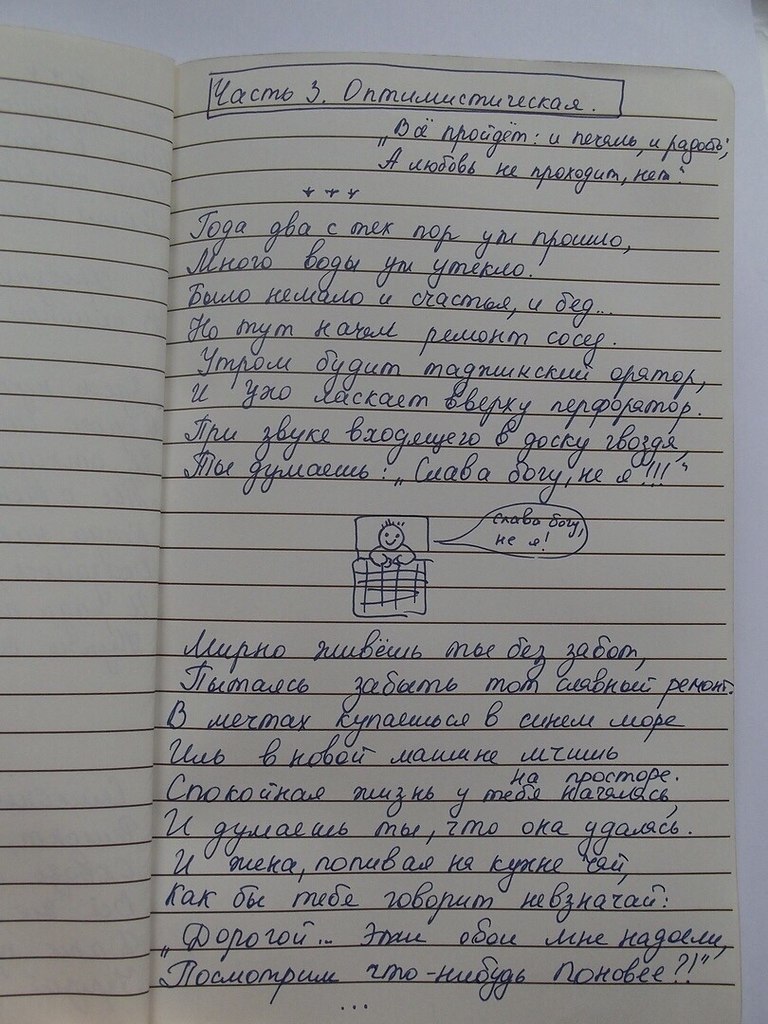 Часть 3. Оптимистическая.
„Всё пройдёт: и печаль, и радость,
А любовь не проходит, нет."
* * *
Года два с тех пор уж прошло,
Много воды уж утекло.
Было немало и счастья, и бед...
Но тут начал ремонт сосед.
Утром будит таджикский оратор,
И ухо ласкает вверху перфоратор.
При звуке входящего в доску гвоздя,
Ты думаешь: „Слава богу, не я!!!"
слава богу,
не я!
Мирно живёшь ты без забот,
Пытаясь забыть тот славный ремонт.
В мечтах купаешься в синем море
Иль в новой машине мчишь
на просторе.
Спокойная жизнь у тебя началась,
И думаешь ты, что она удалась.
И жена, попивая на кухне чай,
Как бы тебе говорит невзначай:
„Дорогой... Эти обои мне надоели,
Посмотрим что-нибудь поновее?!"
...